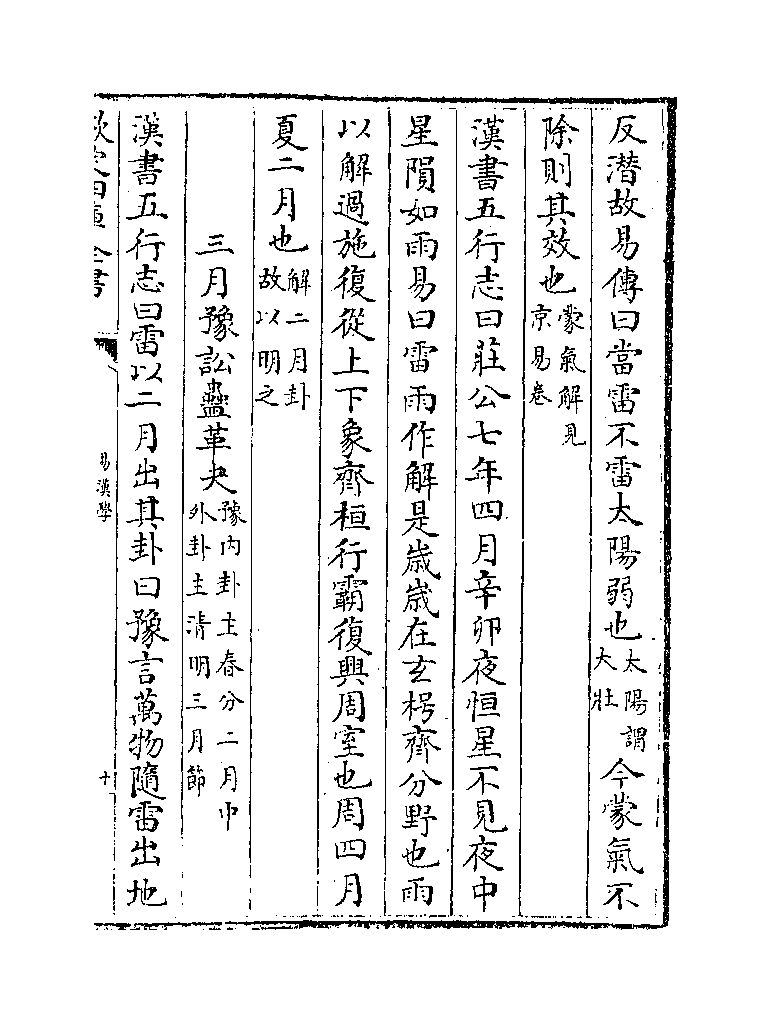 反潜故易傳曰當雷不雷太陽弱也太陽謂大壯今蒙氣不
除則其效也蒙氣解見京易卷
漢書五行志曰莊公七年四月辛卯夜恒星不見夜中
星隕如雨易曰雷雨作解是歲歲在玄枵齊分野也雨
以解過施復從上下象齊桓行霸復興周室也周四月
夏二月也解二月卦故以明之
三月豫訟蠱革夬豫内卦主春分二月中外卦主清明三月節
漢書五行志曰雷以二月出其卦曰豫言萬物隨雷出地
欽定四庫全書
易漢學
十